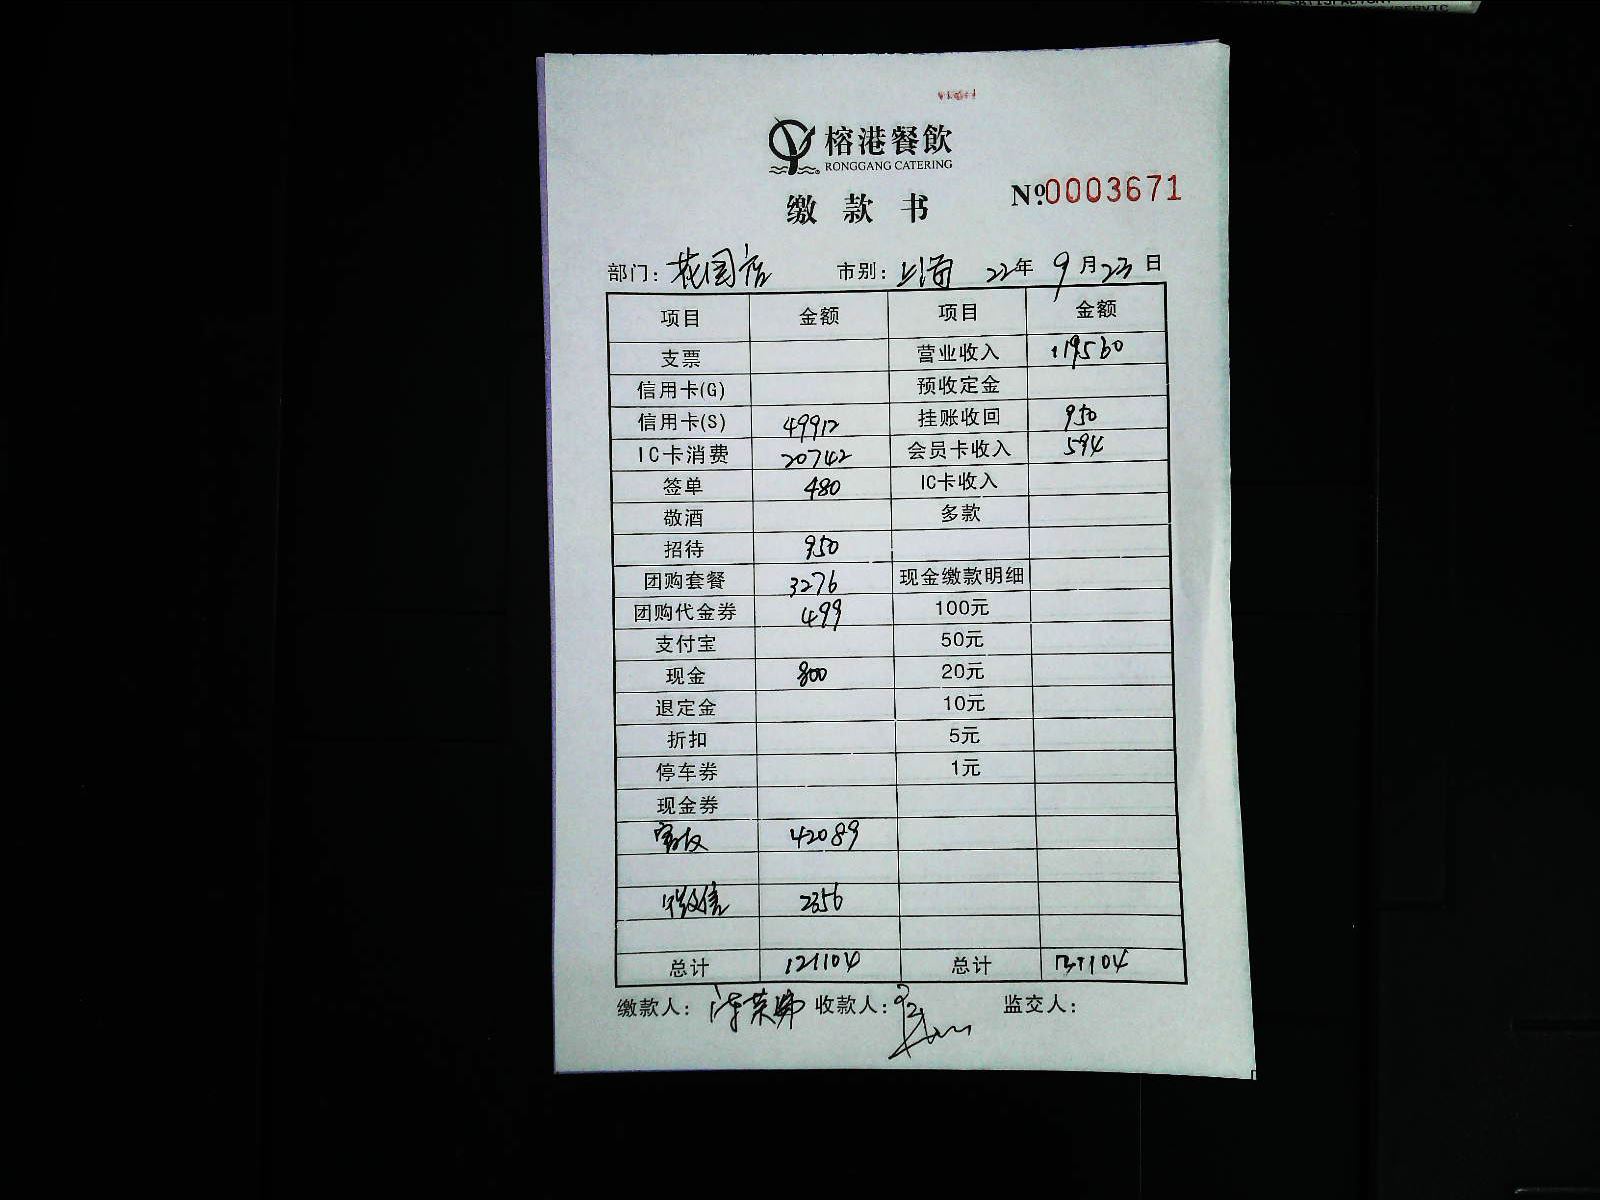 榕港餐飲
RONGGANG CATERING
缴款书
№.0003671
部门: 花园店 市别: 上海 22年 9月23日
项目 金额 项目 金额
支票 营业收入 119560
信用卡(G) 预收定金
信用卡(S) 49912 挂账收回 950
IC卡消费 20742 会员卡收入 594
签单 480 IC卡收入
敬酒 多款
招待 950
团购套餐 3276 现金缴款明细
团购代金券 499 100元
支付宝 50元
现金 800 20元
退定金 10元
折扣 5元
停车券 1元
现金券
42089
微信 2356
总计 121104 总计 121104
缴款人: 收款人: 监交人: